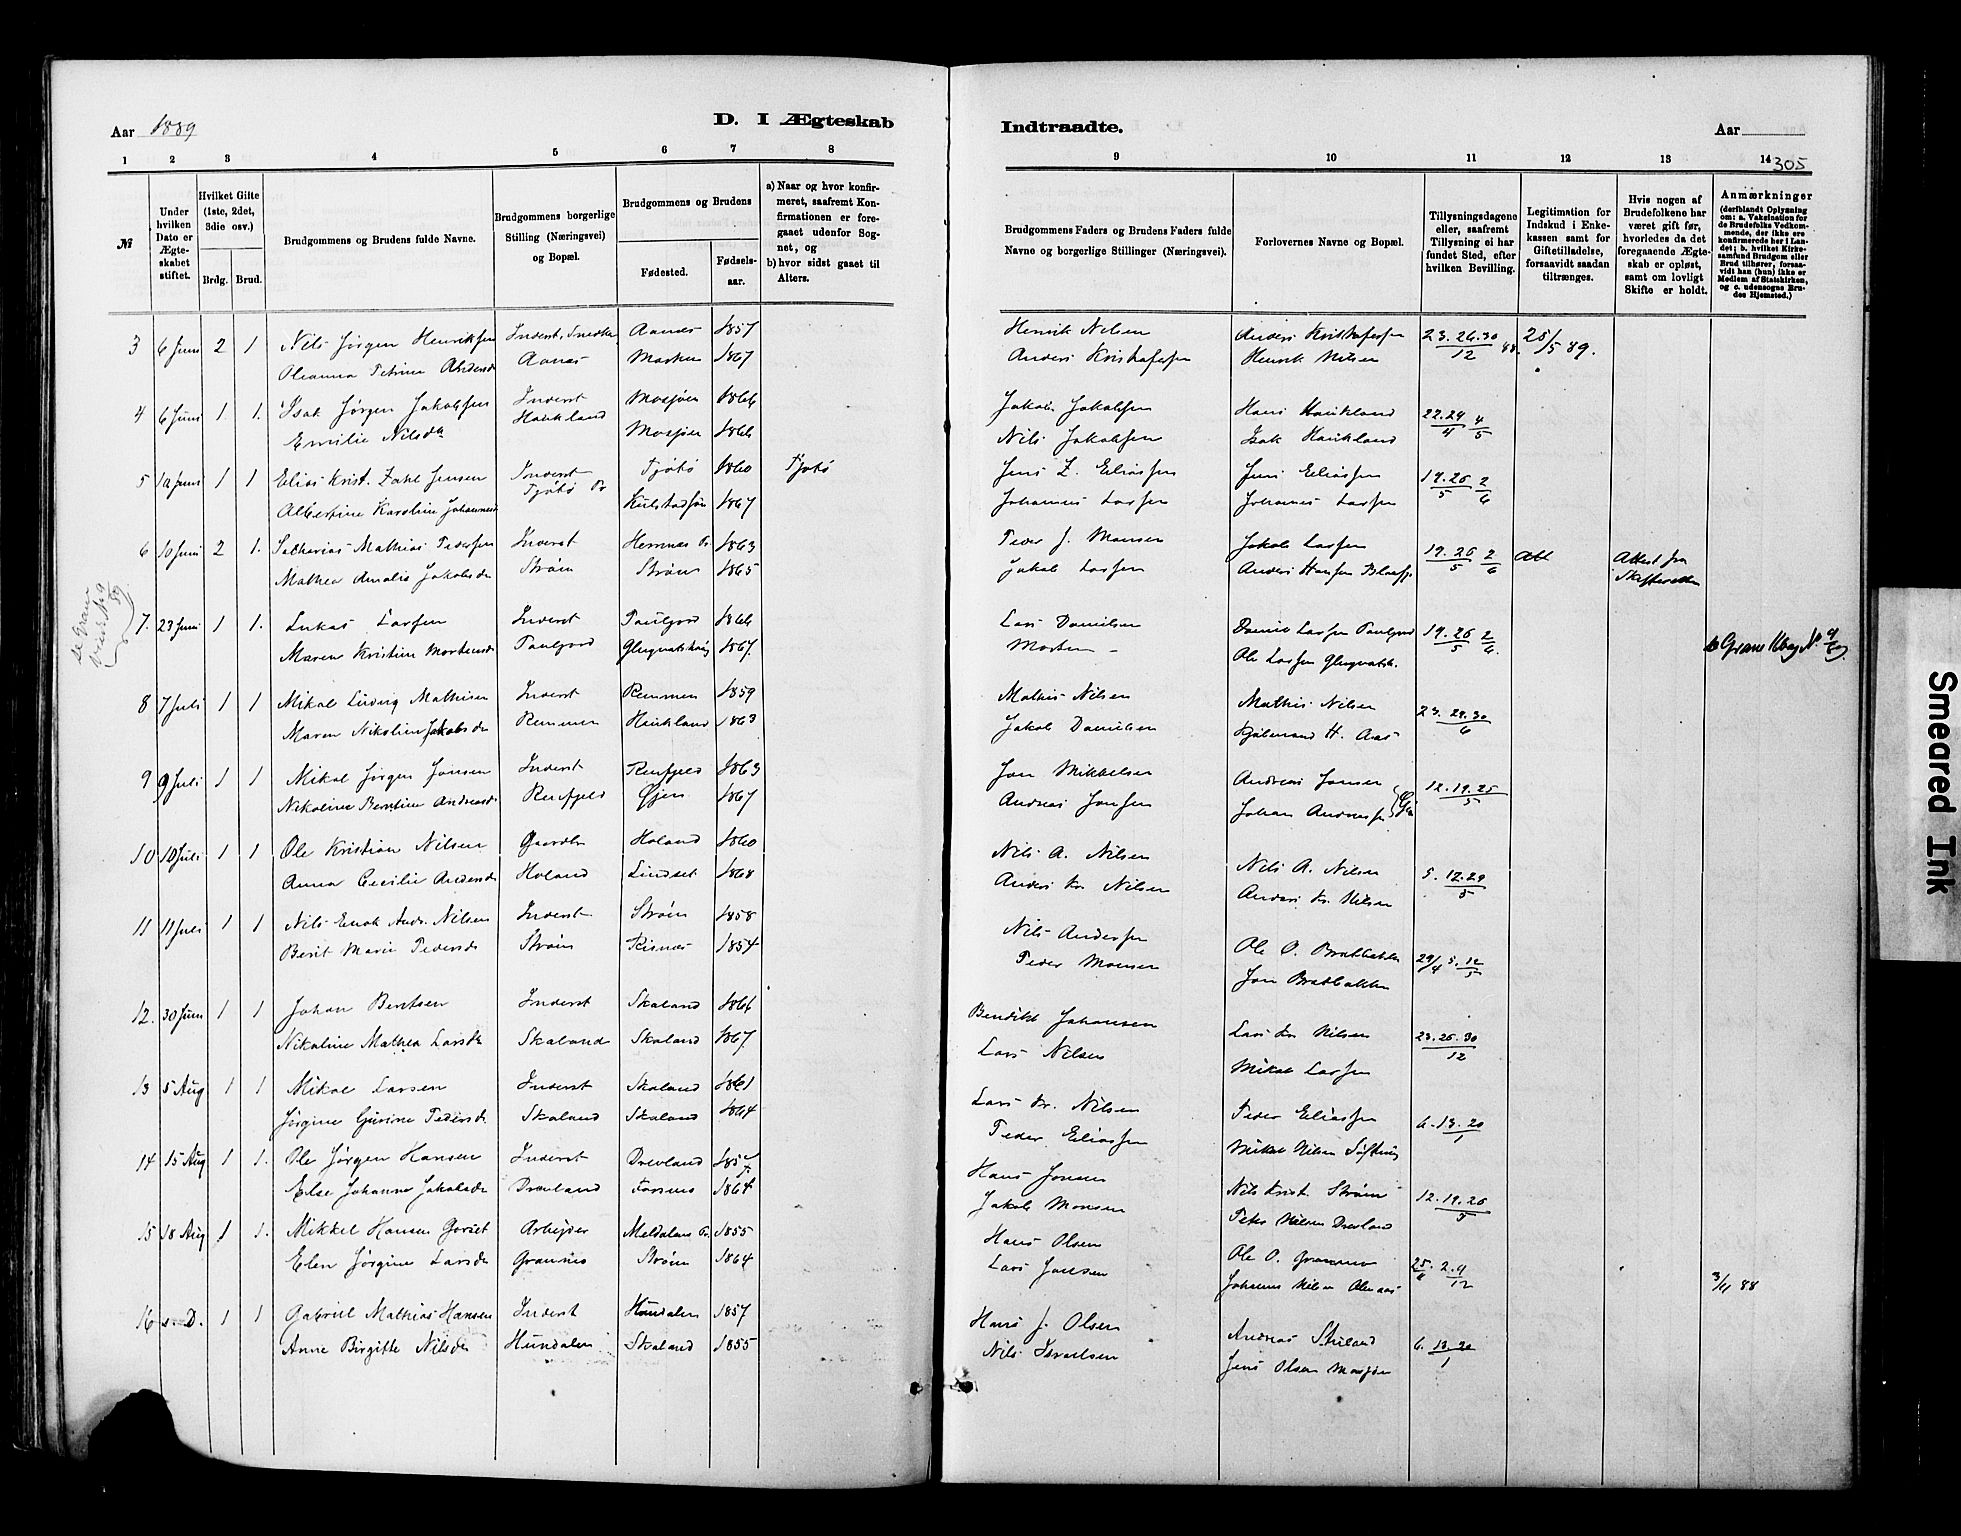 Aar 1889
D. I Ægteskab
1 2 3 4 5 6 7 8
№
Under hvilken Dato er Ægteskabet stiftet.
Hvilket Gifte (1ste, 2det, 3die osv.)
Brdg. Brud.
Brudgommens og Brudens fulde Navne.
Brudgommens borgerlige Stilling (Næringsvei) og Bopæl.
Brudgommens og Brudens
Fødested.
Fødselsaar.
a) Naar og hvor konfirmeret, saafremt Konfirmationen er foregaaet udenfor Sognet, og
b) hvor sidst gaaet til Alters.
3 6 Juni 2 1 Nils Jørgen Henriksen Inderst, Aanes 1857
Oleanna Petrine Andersd Aanes Marken 1867
4 6 Juni 1. 1. Isak Jørgen Jakobsen Inderst Mosjøen 1866
Emilie Nilsdtr Haukland Mosjøen 1866
5 10 Juni 1 1 Elias Krist. Zahl Jensen Inderst Tjøtø 1860 Tjøtø
Albertine Karoline Johannesd Tjøtø Pr 1867
6 10 Juni 2 1. Sacharias Mathias Pedersen Inderst Herrnæs Pr. 1863
Mathea Amalie Jakobsdr Strøm Strøm 1865
7. 23 Juni 1 1. Lukas Larsen Inderst 1866
Maren Kristine Mortensdr 1867.
8 7 Juli 1 1 Mikal Ludvig Mathisen Inderst Remmen 1859
Maren Nikoline Jakobsdr Remmen Haukland 1863
9 9 Juli 1 1 Mikal Jørgen Jonsen Inderst Renfjeld 1863
Nikoline Bentine Andreasdr Renfjeld Øjen 1867
10 10 Juli 1 1 Ole Kristian Nilsen Gaardbr Holand 1860
Anna Cecilie Andersdr Holand Lindset 1868
11 11 Juli 1 1 Nils Enok Andr. Nilsen Inderst Strøm 1858
Berit Marie Pedersdr Strøm Kisnæs 1854
12. 30 Juni 1 1 Johan Bentsen Inderst Skaland 1866
Nikoline Mathea Larsdr Skaland Skaland 1867
13 5 Aug 1 1 Mikal Larsen Inderst Skaland 1861
Jørgine Gurine Pedersdr Skaland Skaland 1864
14 15 Aug 1 1. Ole Jørgen Hansen Inderst Drevland 1857
Else Johanna Jakobsdr Drevland Forsnes 1864
15 18 Aug 1 1. Mikkel Hansen Gorset Arbejder Meldalens Pr. 1855
Elen Jørgine Larsdr Grannes Strøm 1864
16 s. D. 1 1 Gabriel Mathias Hansen Inderst Hundalen 1857
Anne Birgitte Nilsdr Hundalen Skaland 1855
Indtraadte.
Aar
9 10 11 12 13 14
305
Brudgommens Faders og Brudens Faders fulde Navne og borgerlige Stillinger (Næringsvei).
Forlovernes Navne og Bopæl.
Tillysningsdagene eller, saafremt Tillysning ei har fundet Sted, efter hvilken Bevilling.
Legitimation for Indskud i Enkekassen samt for Giftetilladelse, forsaavidt saadan tiltrænges.
Hvis nogen af Brudefolkene har været gift før, hvorledes da det foregaaende Ægteskab er opløst, samt om lovligt Skifte er holdt.
Anmærkninger
(deriblandt Oplysning om: a. Vaksination for de Brudefolks Vedkommende, der ikke ere konfirmerede her i Landet; b. hvilket Kirkesamfund Brudgom eller Brud tilhører, forsaavidt han (hun) ikke er Medlem af Statskirken, og c. udensogns Brudes Hjemsted.)
Henrik Nilsen Anders Kristofersen 23. 26. 30/12 88. 25/5 89.
Anders Kristofersen Henrik Nilsen
Jakob Jakobsen Hans Haukland 22. 29/4 4/5
Nils Jakobsen Isak Haukland
Jens Z. Eliassen Jens Eliassen 19. 26/5 2/6
Johannes Larsen Johannes Larsen
Peder J. Monsen Jakob Larsen 19. 26/5 2/6 Att Attest fra Skifteretten
Jakob Larsen Anders Hansen
Lars Danielsen Daniel Larsen 19. 26/5 2/6
Morten - Ole Larsen
Mathis Nilsen Mathis Nilsen 23. 29. 30/6
Jakob Danielsen Hjelmand H. Aas
Jon Mikkelsen Andreas Jonsen 12. 19. 25/5
Andreas Jonsen Johan Andreassen
Nils A. Nilsen Nils A. Nilsen 5. 12. 29/5
Anders Kr. Nilsen Anders Kr. Nilsen
Nils Andersen Ole O. Bratbakken 29/4 5. 12/5
Peder Monsen Jon Bratbakken
Bendikt Johansen Lars Kr. Nilsen 23. 26. 30/12
Lars Nilsen Mikal Larsen
Lars Kr. Nilsen Peder Eliassen 6. 13. 20/1
Peder Eliassen Mikal Nilsen
Hans Jonsen Nils Krist. Strøm 12. 19. 26/5
Jakob Monsen Peter Nilsen Drevland
Hans Olsen Ole O. Grannes 25/11. 2. 9/12 3/11 88
Lars Jonsen Johannes Nilsen
Hans J. Olsen Andreas 6. 13. 20/1
Nils Israelsen Jens Olsen Mosjøen
Smeared Ink